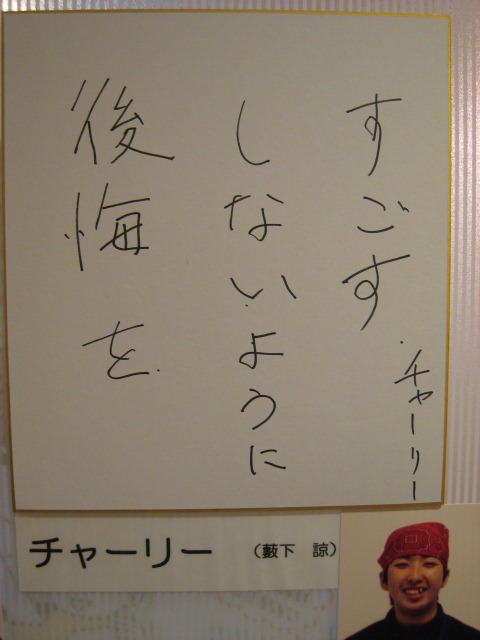 後悔を
しないように
すごす
チャーリー
チャーリー (藪下 諒)